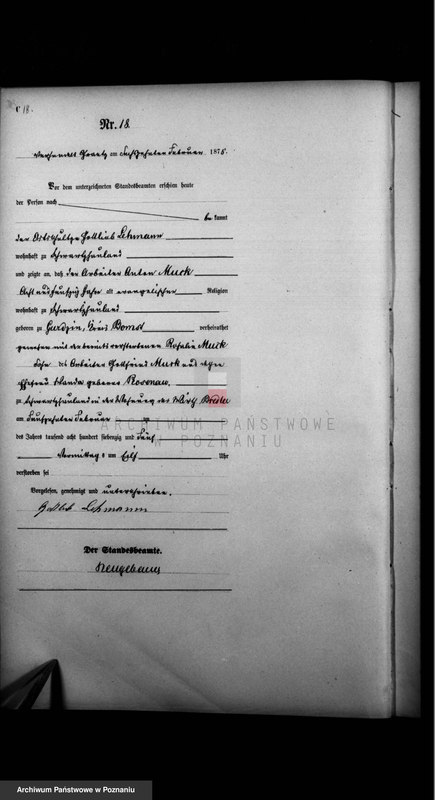 C 18.
Nr. 18
am Sechszehnten Februar 1875.
Vor dem unterzeichneten Standesbeamten erschien heute
der Person nach
be kannt
der Ortsschultze Gottlieb Lehmann
wohnhaft zu Schwartzhauland
und zeigte an, daß der Arbeiter Anton Musk
Acht und fünfzig Jahre alt evangelischer Religion
wohnhaft zu Schwartzhauland
geboren zu Kreis Bomst verheirathet
gewesen mit der bereits verstorbenen Rosalie Musk
Sohn des Arbeiter Gottfried Musk und dessen
Ehefrau geborene
zu Schwartzhauland in der Wohnung des Wirth
am Fünfzehnten Februar
des Jahres tausend acht hundert siebenzig und fünf
Vormittags um Elf Uhr
verstorben sei
Vorgelesen, genehmigt und unterschrieben.
Gottlieb Lehmann
Der Standesbeamte.
Neugebauer
ARCHIWUM PAŃSTWOWE
W POZNANIU
Archiwum Państwowe w Poznaniu